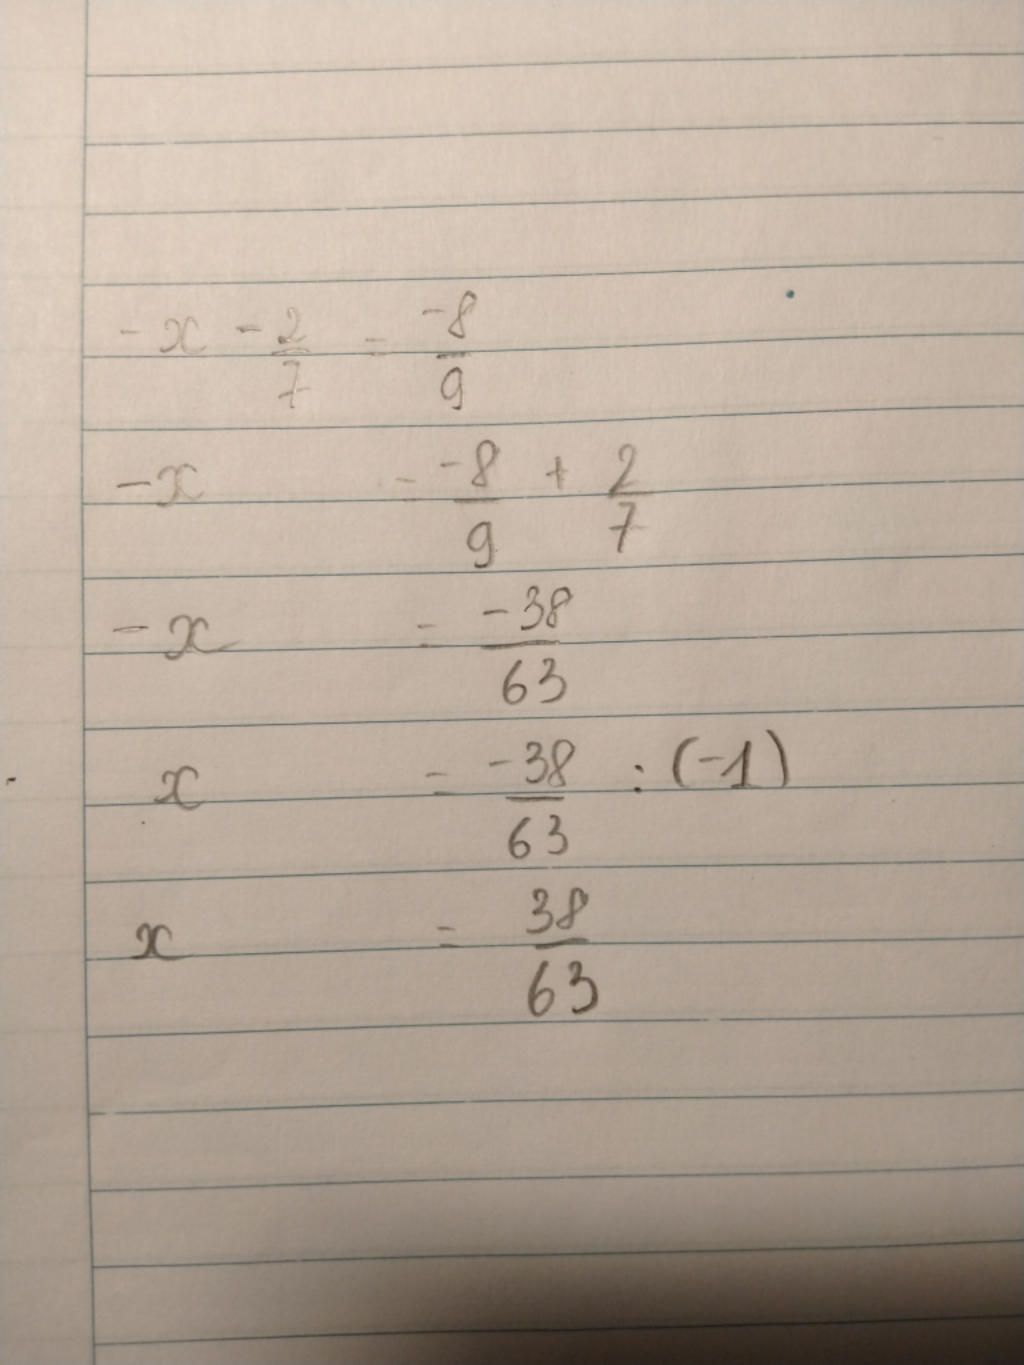 -x - 2/7 = -8/9
-x = -8/9 + 2/7
-x = -38/63
x = -38/63 : (-1)
x = 38/63